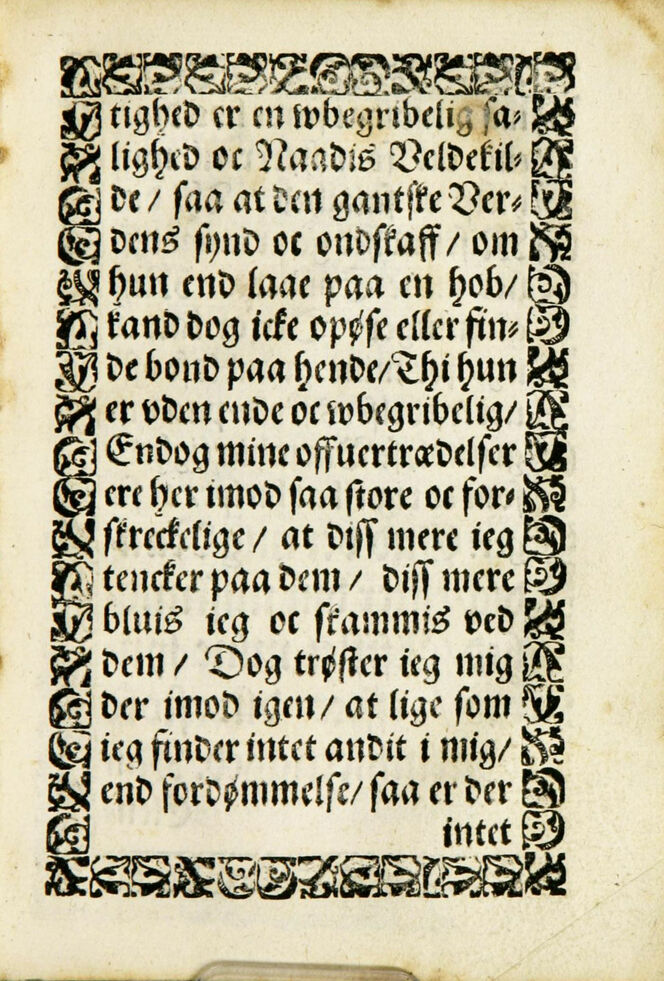 tighed er en wbegribelig sa⸗
lighed oc Naadis Veldekil⸗
de / saa at den gantske Ver⸗
dens synd oc ondskaff / om
hun end laae paa en hob/
kand dog icke opøse eller fin⸗
de bond paa hende/Thi hun
er vden ende oc wbegribelig/
Endog mine offuertrædelser
ere her imod saa store oc for⸗
skreckelige / at diss mere ieg
tencker paa dem / diss mere
bluis ieg oc skammis ved
dem / Dog trøster ieg mig
der imod igen/ at lige som
ieg finder intet andit i mig/
end fordømmelse/ saa er der
intet